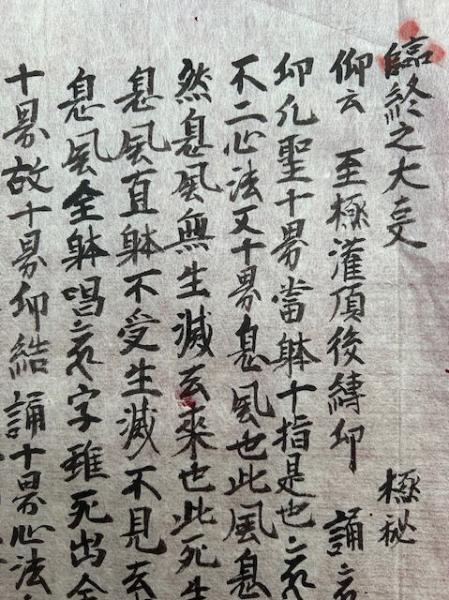 臨終之大叓 極秘
印云 至極灌頂後縛印 誦
印凡聖十界當躰十指是也
不二心法又十界息風也此風息
然息風無生滅去來也此死生
息風直躰不受生滅不見去
息風全躰唱 字雖死出
十界故十界印結 誦十界心法